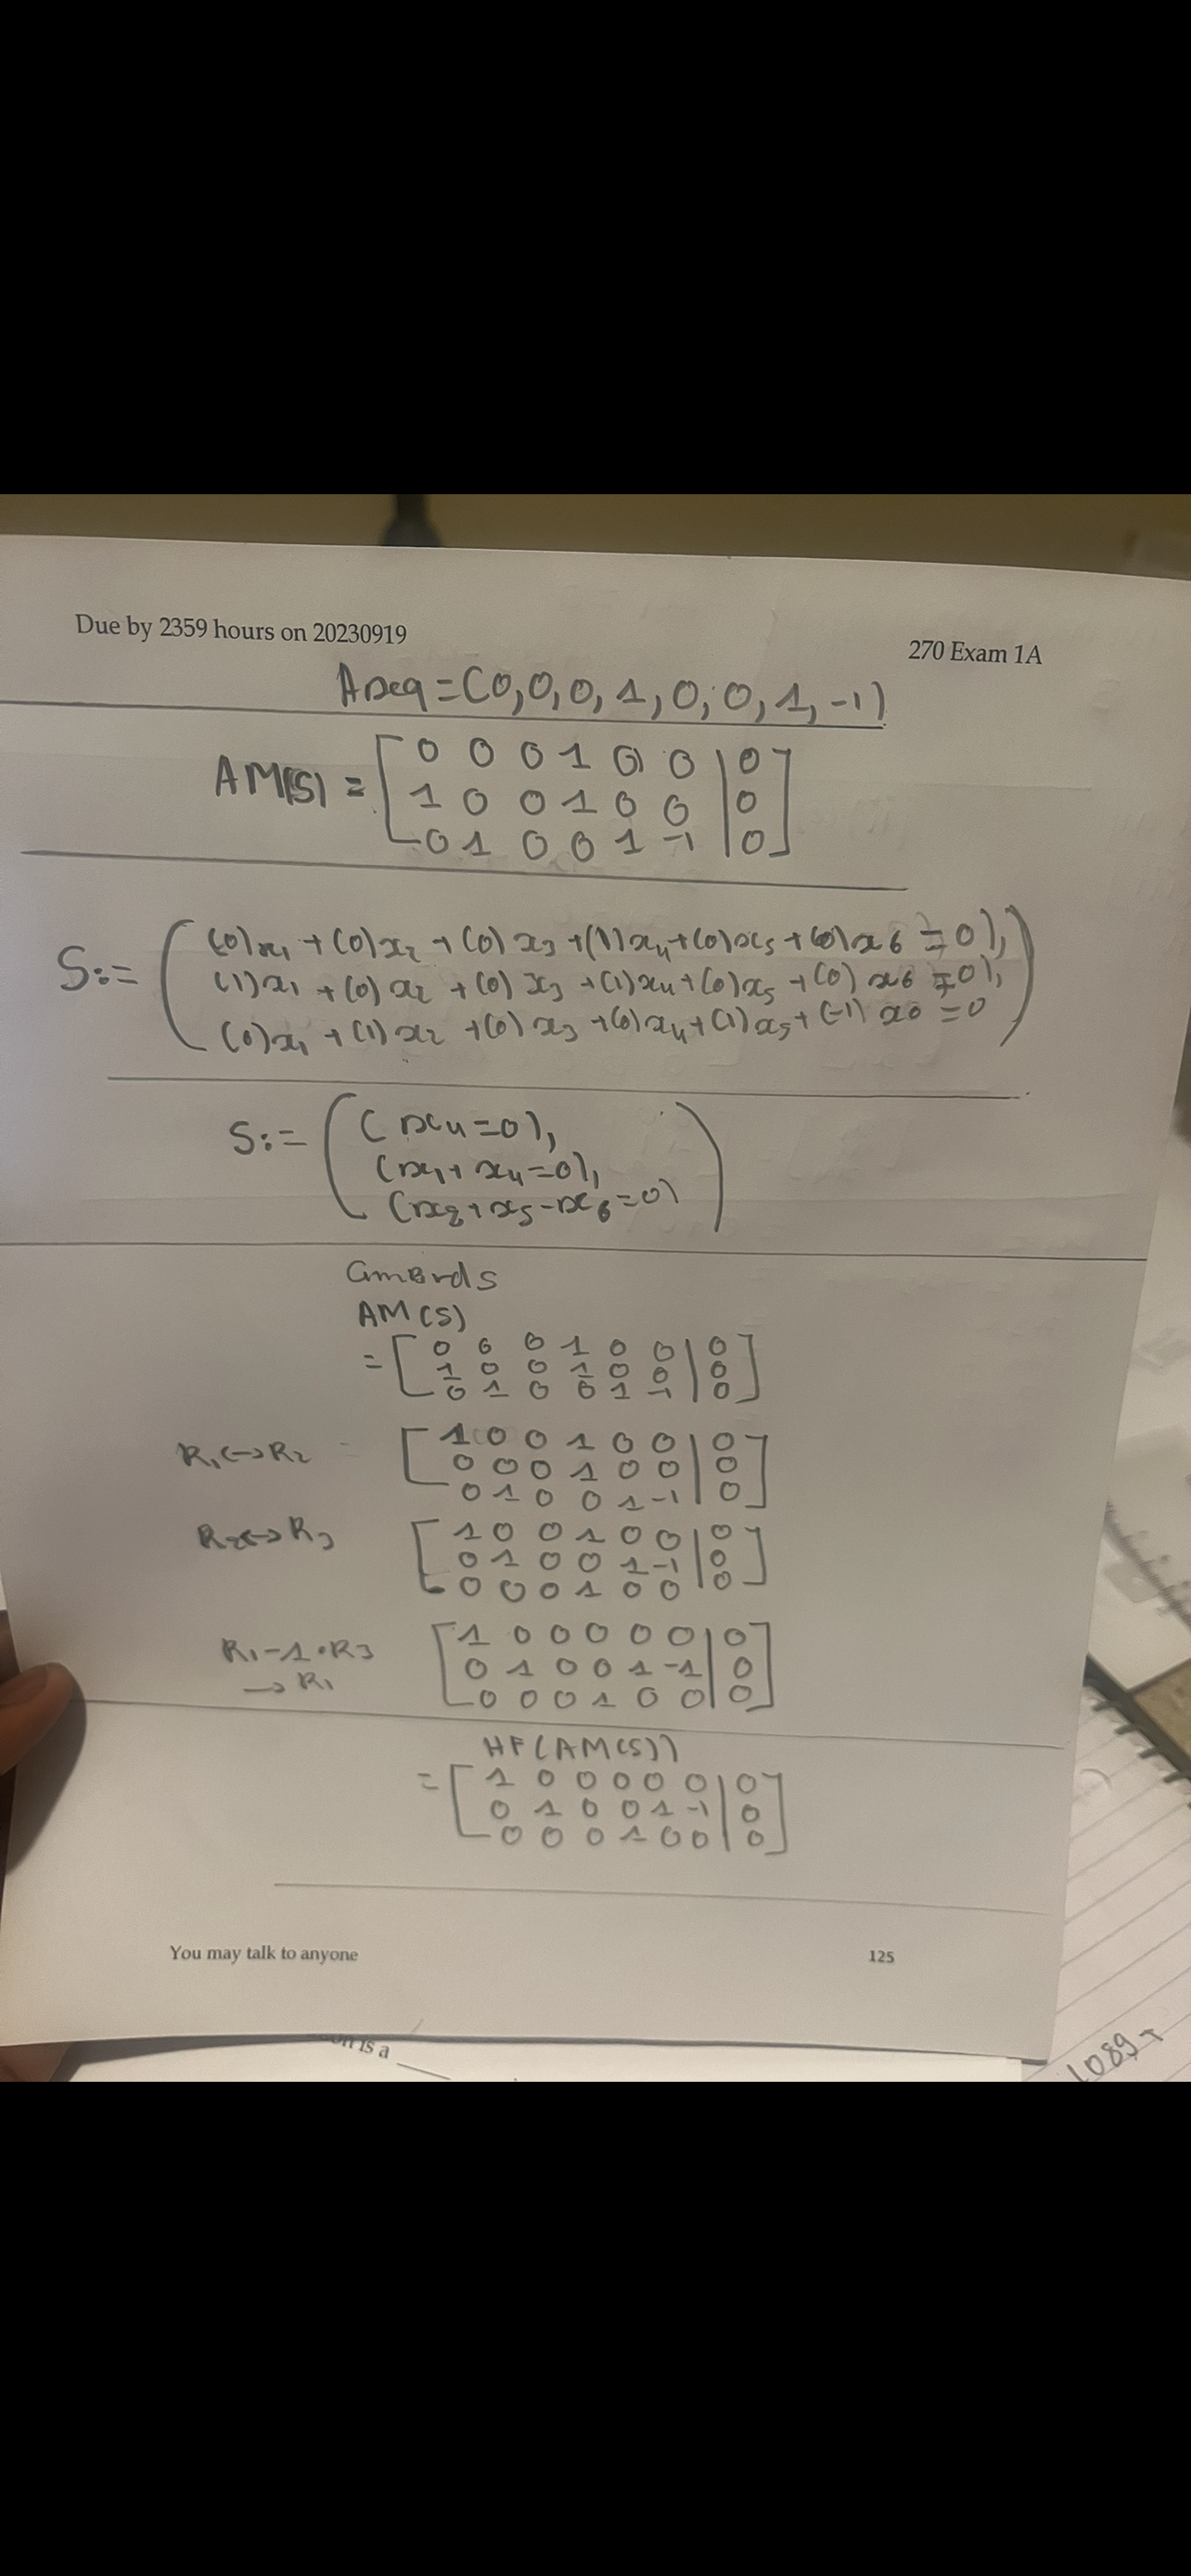 Due by 2359 hours on 20230919
270 Exam 1A
Aseq = (0,0,0,1,0,0,1,-1)
AM(S) = [ 0 0 0 1 0 0 | 0 ]
1 0 0 1 0 0 | 0
0 1 0 0 1 -1 | 0
S:= ( (0)x1 + (0)x2 + (0)x3 + (1)x4 + (0)x5 + (0)x6 = 0),
(1)x1 + (0)x2 + (0)x3 + (1)x4 + (0)x5 + (0)x6 = 0),
(0)x1 + (1)x2 + (0)x3 + (0)x4 + (1)x5 + (-1)x6 = 0 )
S:= ( (x4=0),
(x1+x4=0),
(x2+x5-x6=0) )
AM(S)
= [ 0 0 0 1 0 0 | 0 ]
1 0 0 1 0 0 | 0
0 1 0 0 1 -1 | 0
R1<->R2 [ 1 0 0 1 0 0 | 0 ]
0 0 0 1 0 0 | 0
0 1 0 0 1 -1 | 0
R2<->R3 [ 1 0 0 1 0 0 | 0 ]
0 1 0 0 1 -1 | 0
0 0 0 1 0 0 | 0
R1-1·R3 [ 1 0 0 0 0 0 | 0 ]
→R1 0 1 0 0 1 -1 | 0
0 0 0 1 0 0 | 0
HF(AM(S))
= [ 1 0 0 0 0 0 | 0 ]
0 1 0 0 1 -1 | 0
0 0 0 1 0 0 | 0
You may talk to anyone
125
is a
1089